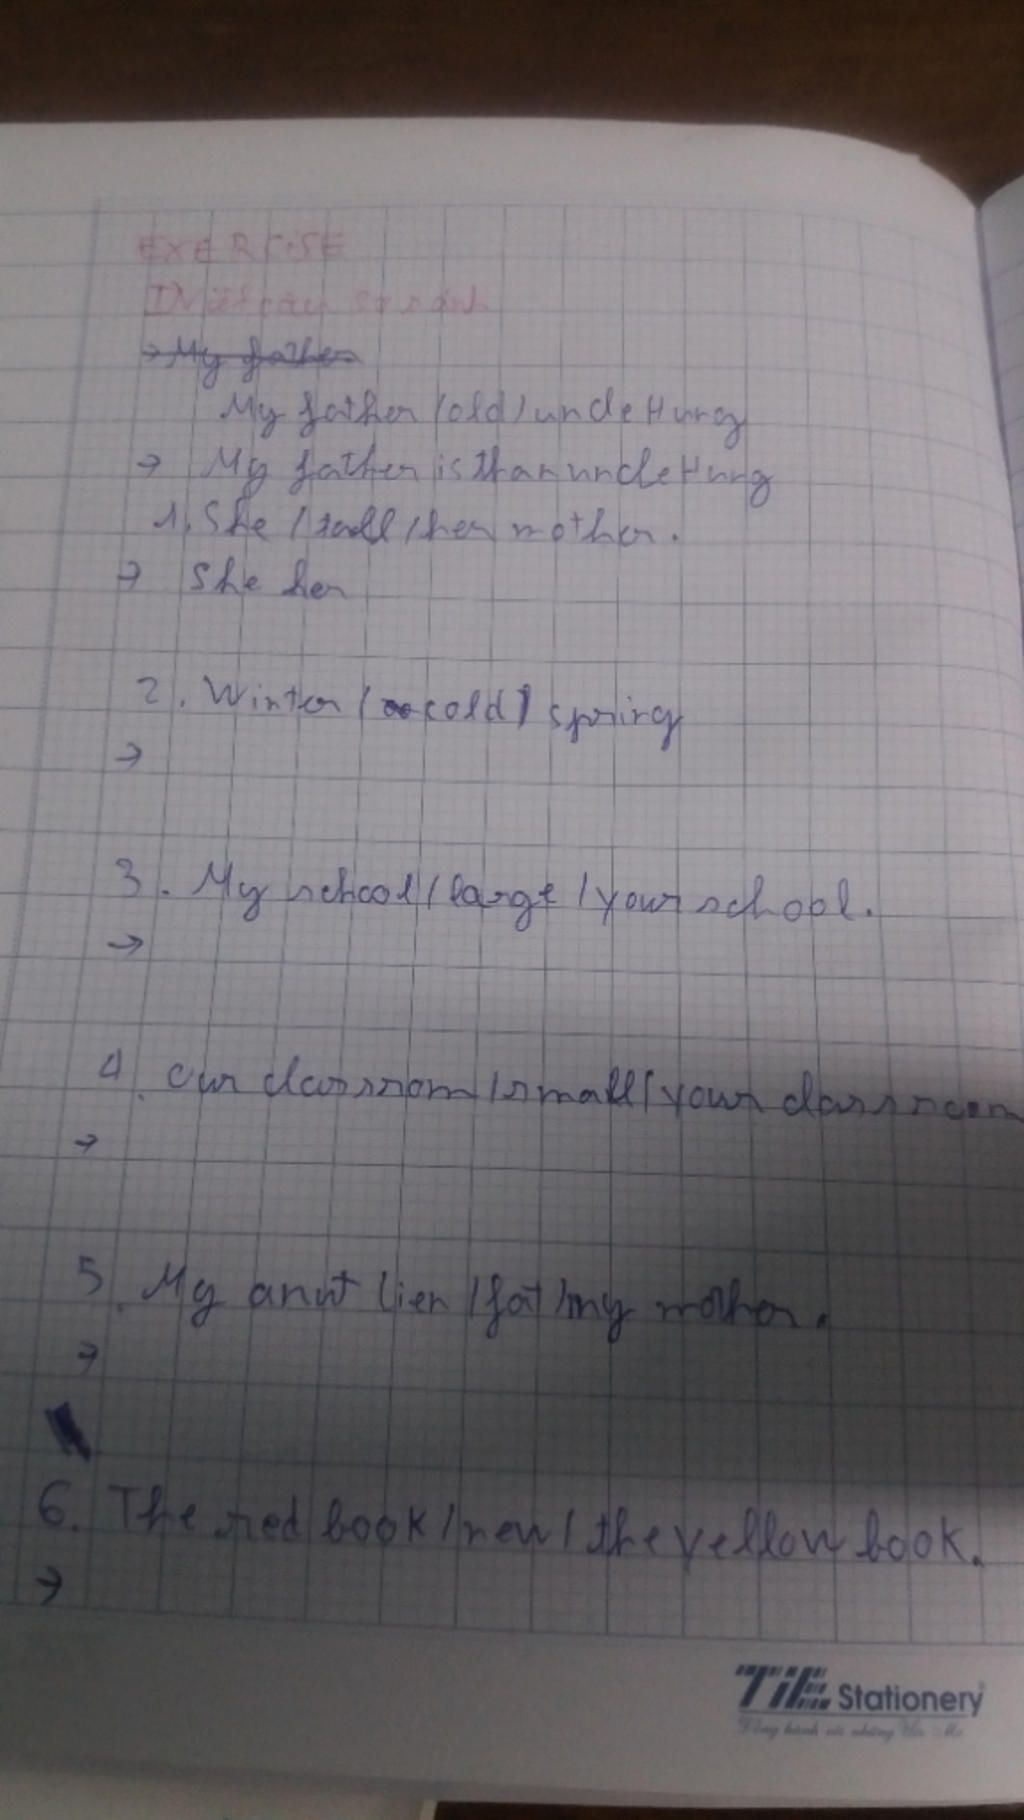 EXERCISE
I Viết câu so sánh
→ My father
My father / old / uncle Hung
→ My father is than uncle Hung
1. She / tall / her mother.
→ She her
2. Winter / cold / spring
→
3. My school / large / your school.
→
4. our classroom / small / your classroom
→
5. My anut lien / fat / my mother.
→
6. The red book / new / the yellow book.
→
TiE Stationery